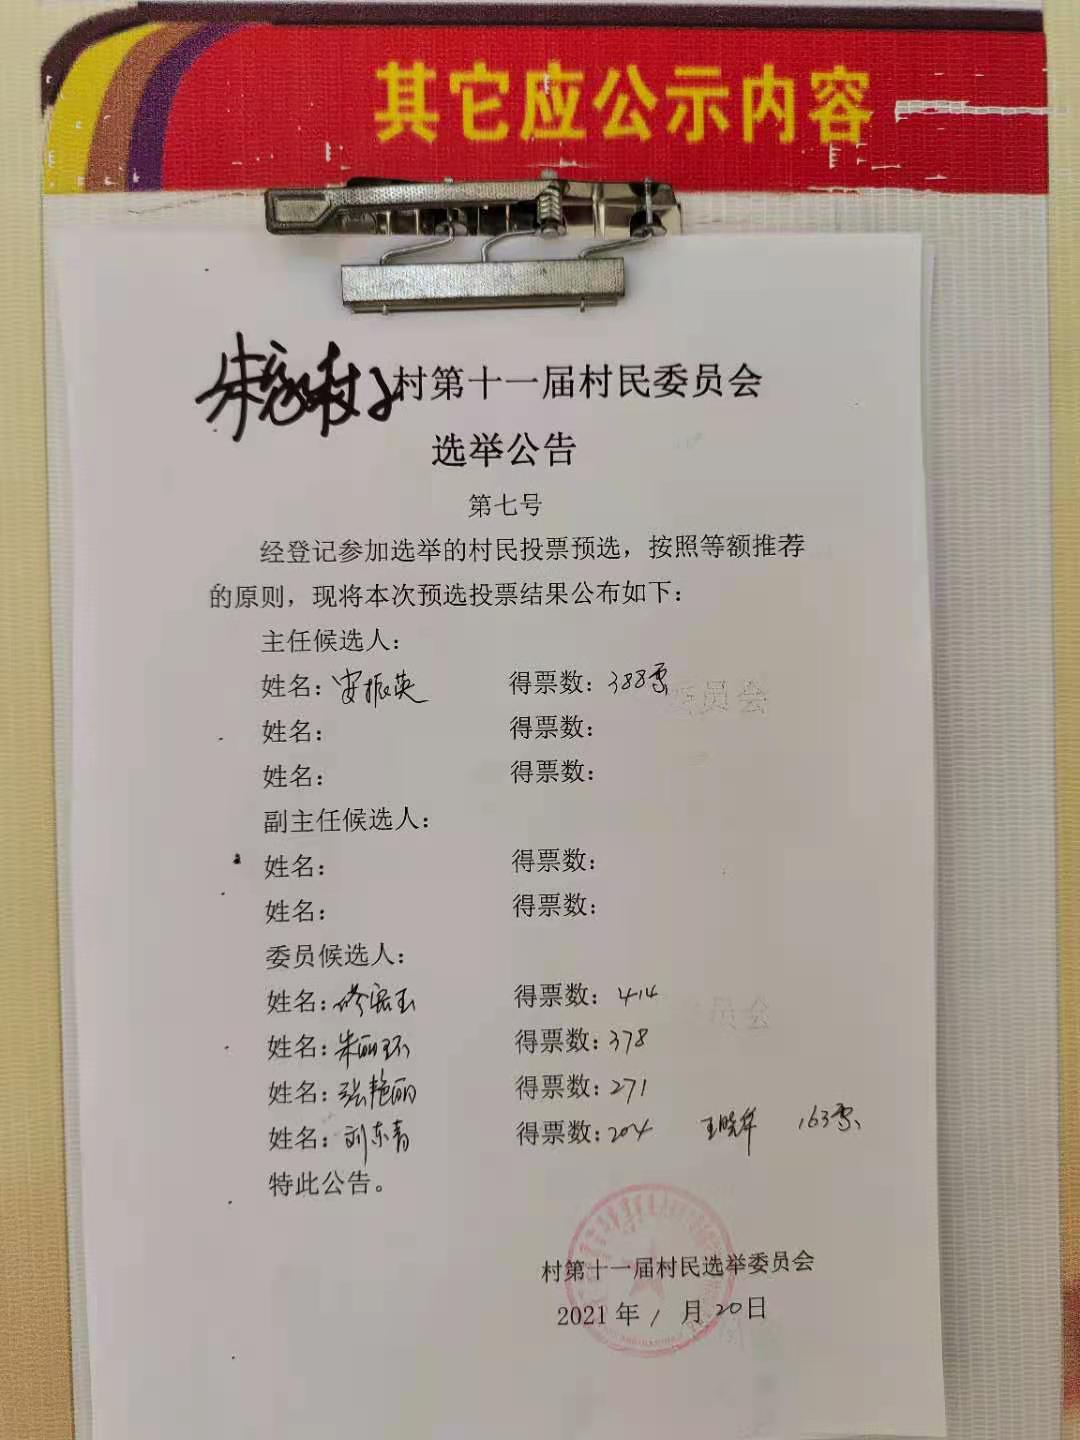 其它应公示内容
朱家村村第十一届村民委员会
选举公告
第七号
经登记参加选举的村民投票预选，按照等额推荐
的原则，现将本次预选投票结果公布如下：
主任候选人：
姓名：安振英 得票数：388票
姓名： 得票数：
姓名： 得票数：
副主任候选人：
姓名： 得票数：
姓名： 得票数：
委员候选人：
姓名： 得票数：414
姓名：朱丽环 得票数：378
姓名：张艳丽 得票数：271
姓名：刘东青 得票数：204 王晓华 163票
特此公告。
村第十一届村民选举委员会
2021年1月20日